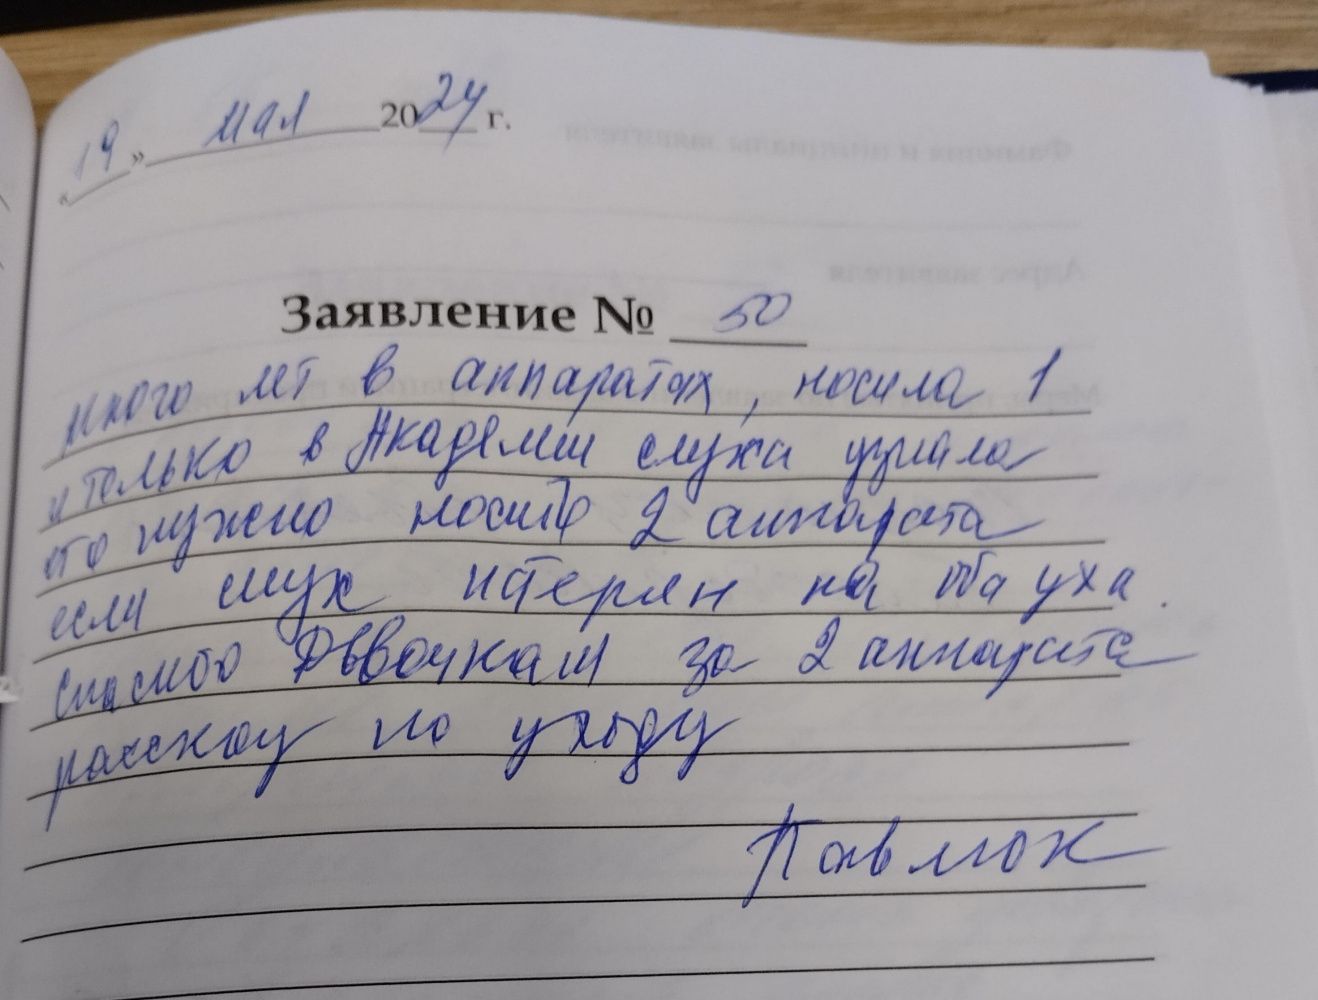 «19» мая 2024 г.
Заявление № 50
много лет в аппаратах, носила 1
и только в Академии слуха узнала
что нужно носить 2 аппарата
если слух потерян на оба уха.
Спасибо Девочкам за 2 аппарата
рассказ по уходу
Павлюк